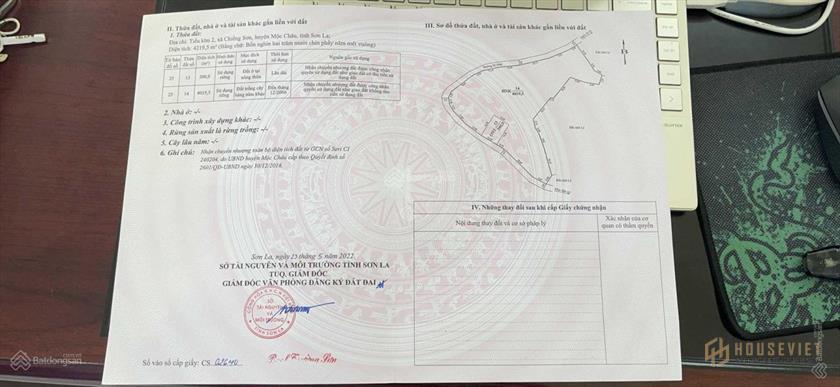 II. Thửa đất, nhà ở và tài sản khác gắn liền với đất
1. Thửa đất:
Địa chỉ: Tiểu khu 2, xã Chiềng Sơn, huyện Mộc Châu, tỉnh Sơn La;
Diện tích: 4215,5 m² (Bằng chữ: Bốn nghìn hai trăm mười lăm phẩy năm mét vuông)
Tờ bản đồ số
Thửa đất số
Diện tích (m²)
Hình thức sử dụng
Mục đích sử dụng
Thời hạn sử dụng
Nguồn gốc sử dụng
25 13 200,0 Sử dụng riêng Đất ở tại nông thôn Lâu dài Nhận chuyển nhượng đất được công nhận quyền sử dụng đất như giao đất có thu tiền sử dụng đất
25 14 4015,5 Sử dụng riêng Đất trồng cây hàng năm khác Đến tháng 12/2066 Nhận chuyển nhượng đất được công nhận quyền sử dụng đất như giao đất không thu tiền sử dụng đất
2. Nhà ở: -/-
3. Công trình xây dựng khác: -/-
4. Rừng sản xuất là rừng trồng: -/-
5. Cây lâu năm: -/-
6. Ghi chú:
Nhận chuyển nhượng toàn bộ diện tích đất từ GCN số Seri CI
240204, do UBND huyện Mộc Châu cấp theo Quyết định số
2601/QĐ-UBND ngày 30/12/2016.
Sơn La, ngày 25 tháng 5 năm 2022
SỞ TÀI NGUYÊN VÀ MÔI TRƯỜNG TỈNH SƠN LA
TUQ. GIÁM ĐỐC
GIÁM ĐỐC VĂN PHÒNG ĐĂNG KÝ ĐẤT ĐAI
SỞ
TÀI NGUYÊN
VÀ
MÔI TRƯỜNG
TỈNH SƠN LA
Số vào sổ cấp giấy: CS 02640
III. Sơ đồ thửa đất, nhà ở và tài sản khác gắn liền với đất
14
IV. Những thay đổi sau khi cấp Giấy chứng nhận
Nội dung thay đổi và cơ sở pháp lý
Xác nhận của cơ quan có thẩm quyền
Batdongsan.com.vn
HOUSEVIET
Batdongsan